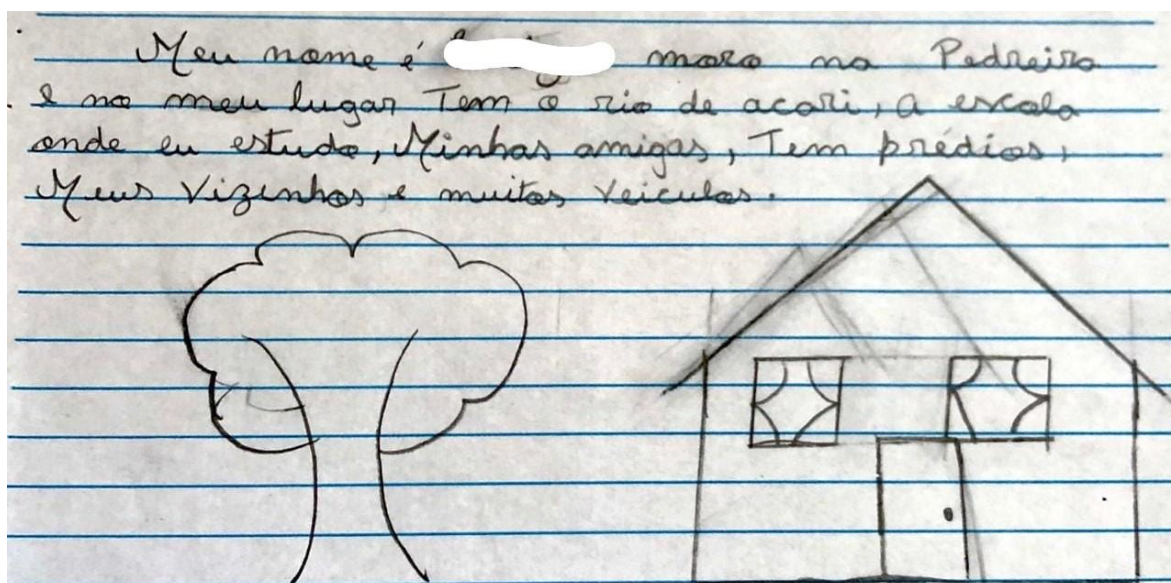 Meu nome é moro na Pedreira
e no meu lugar Tem o rio de acari, a escola
onde eu estudo, Minhas amigas, Tem prédios,
Meus Vizinhos e muitos veiculos.